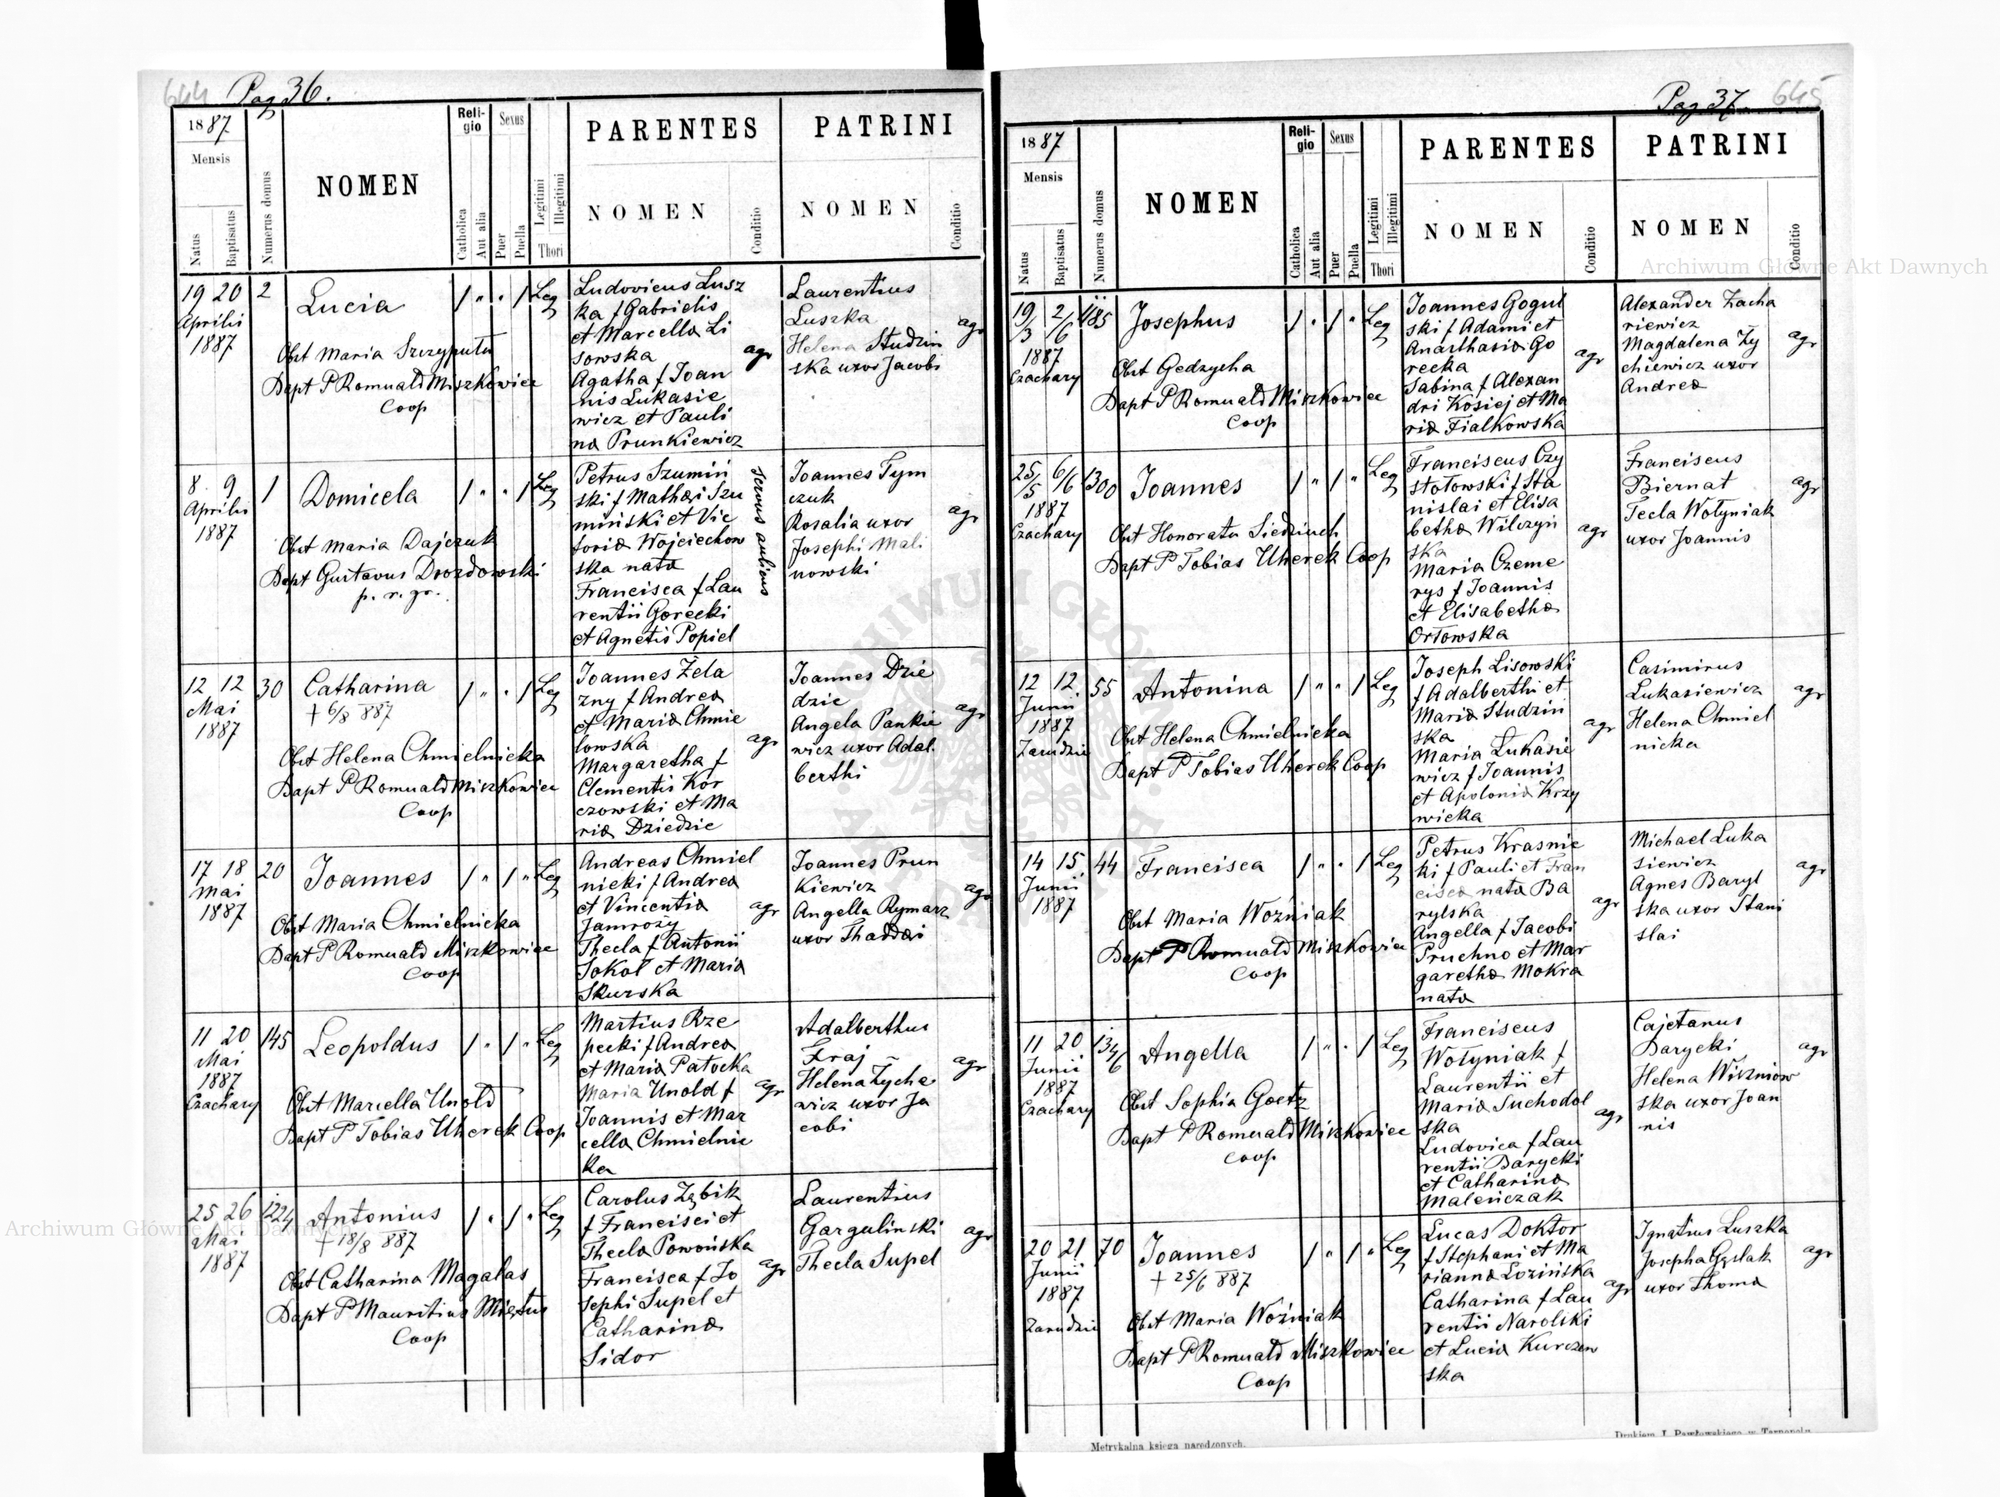 644 Pag 36.
1887
Mensis
Natus
Baptisatus
Numerus domus
NOMEN
Religio
Catholica
Aut alia
Sexus
Puer
Puella
Legitimi
Illegitimi
Thori
PARENTES
NOMEN
Conditio
PATRINI
NOMEN
Conditio
19 20 2
Aprilis
1887
Lucia
1 " " 1 Leg
Obst Maria Szczyputa
Bapt P Romuald Miszkowicz
Coop
Ludovicus Lusz
ka f Gabrielis
et Marcella Li
sowska
Agatha f Joan
nis Lukasie
wicz et Pauli
na Prunkiewicz
agr
Laurentius
Luszka
Helena Studzin
ska uxor Jacobi
agr
8 9 1
Aprilis
1887
Domicela
1 " " 1 Leg
Obst Maria Dajczuk
Bapt Gustavus Drozdowski
p. r. gr.
Petrus Szumiń
ski f Mathæi Szu
miński et Vic
toria Wojciechow
ska nata
Francisca f Lau
rentii Gorecki
et Agnetis Popiel
servus aulicus
Joannes Tym
czuk
Rosalia uxor
Josephi Mali
nowski
agr
12 12 30
Mai
1887
Catharina
+ 6/8 887
1 " " 1 Leg
Obst Helena Chmielnicka
Bapt P Romuald Miszkowicz
Coop
Joannes Żela
zny f Andrea
et Maria Chmie
lowska
Margaretha f
Clementis Kor
czowski et Ma
ria Dziedzic
agr
Joannes Dzie
dzic
Angela Pankie
wicz uxor Adal
berthi
agr
17 18 20
Mai
1887
Joannes
1 " 1 " Leg
Obst Maria Chmielnicka
Bapt P Romuald Miszkowicz
Coop
Andreas Chmiel
nicki f Andrea
et Vincentia
Jamroży
Thecla f Antonii
Sokol et Maria
Skurska
agr
Joannes Prun
kiewicz
Angella Rymarz
uxor Thaddæi
agr
11 20 145
Mai
1887
Czachary
Leopoldus
1 " 1 " Leg
Obst Marcella Unold
Bapt P Tobias Uherek Coop
Martius Rze
pecki f Andrea
et Maria Patocka
Maria Unold f
Joannis et Mar
cella Chmielnic
ka
agr
Adalberthus
Fraj
Helena Zycha
wicz uxor Ja
cobi
agr
25 26 122
Mai
1887
Antonius
+ 18/8 887
1 " 1 " Leg
Obst Catharina Magalas
Bapt P Mauritius Miętus
Coop
Carolus Zębik
f Francisci et
Thecla Powońska
Francisca f Jo
sephi Supel et
Catharina
Sidor
agr
Laurentius
Gargulinski
Thecla Supel
agr
Pag 37. 645
1887
Mensis
Natus
Baptisatus
Numerus domus
NOMEN
Religio
Catholica
Aut alia
Sexus
Puer
Puella
Legitimi
Illegitimi
Thori
PARENTES
NOMEN
Conditio
PATRINI
NOMEN
Conditio
19/3 2/6 185
1887
Czachary
Josephus
1 " 1 " Leg
Obst Gedzycha
Bapt P Romuald Miszkowicz
Coop
Joannes Gogul
ski f Adami et
Anasthasia Go
recka
Sabina f Alexan
dri Kosiej et Ma
ria Fialkowska
agr
Alexander Zacha
riewicz
Magdalena Zy
chiewicz uxor
Andrea
agr
25/5 6/6 300
1887
Czachary
Joannes
1 " 1 " Leg
Obst Honorata Siedziuch
Bapt P Tobias Uherek Coop
Franciscus Czy
stołowski f Sta
nislai et Elisa
betha Wilczyń
ska
Maria Czeme
rys f Joannis
et Elisabetha
Orłowska
agr
Franciscus
Biernat
Tecla Wołyniak
uxor Joannis
agr
12 12 55
Junii
1887
Zarudzie
Antonina
1 " " 1 Leg
Obst Helena Chmielnicka
Bapt P Tobias Uherek Coop
Joseph Lisowski
f Adalberthi et
Maria Studzin
ska
Maria Lukasie
wicz f Joannis
et Apolonia Krzy
wicka
agr
Casimirus
Lukasiewicz
Helena Chmiel
nicka
agr
14 15 44
Junii
1887
Francisca
1 " " 1 Leg
Obst Maria Woźniak
Bapt P Romuald Miszkowicz
Coop
Petrus Krasnic
ki f Pauli et Fran
cisca nata Ba
rylska
Angella f Jacobi
Pruchno et Mar
garetha Mokra
nata
agr
Michael Luka
siewicz
Agnes Baryl
ska uxor Stani
slai
agr
11 20 1346
Junii
1887
Czachary
Angella
1 " " 1 Leg
Obst Sophia Goetz
Bapt P Romuald Miszkowicz
Coop
Franciscus
Wołyniak f
Laurentii et
Maria Suchodol
ska
Ludovica f Lau
rentii Barycki
et Catharina
Maleńczak
agr
Cajetanus
Barycki
Helena Wiszniow
ska uxor Joan
nis
agr
20 21 70
Junii
1887
Zarudzie
Joannes
+ 25/6 887
1 " 1 " Leg
Obst Maria Woźniak
Bapt P Romuald Miszkowicz
Coop
Lucas Doktor
f Stephani et Ma
rianna Lozińska
Catharina f Lau
rentii Narolski
et Lucia Kurczew
ska
agr
Ignatius Luszka
Josepha Gęslak
uxor Thoma
agr
Metrykalna księga narodzonych.
Drukiem J. Pawłowskiego w Tarnopolu
Archiwum Główne Akt Dawnych
Archiwum Główne Akt Dawnych